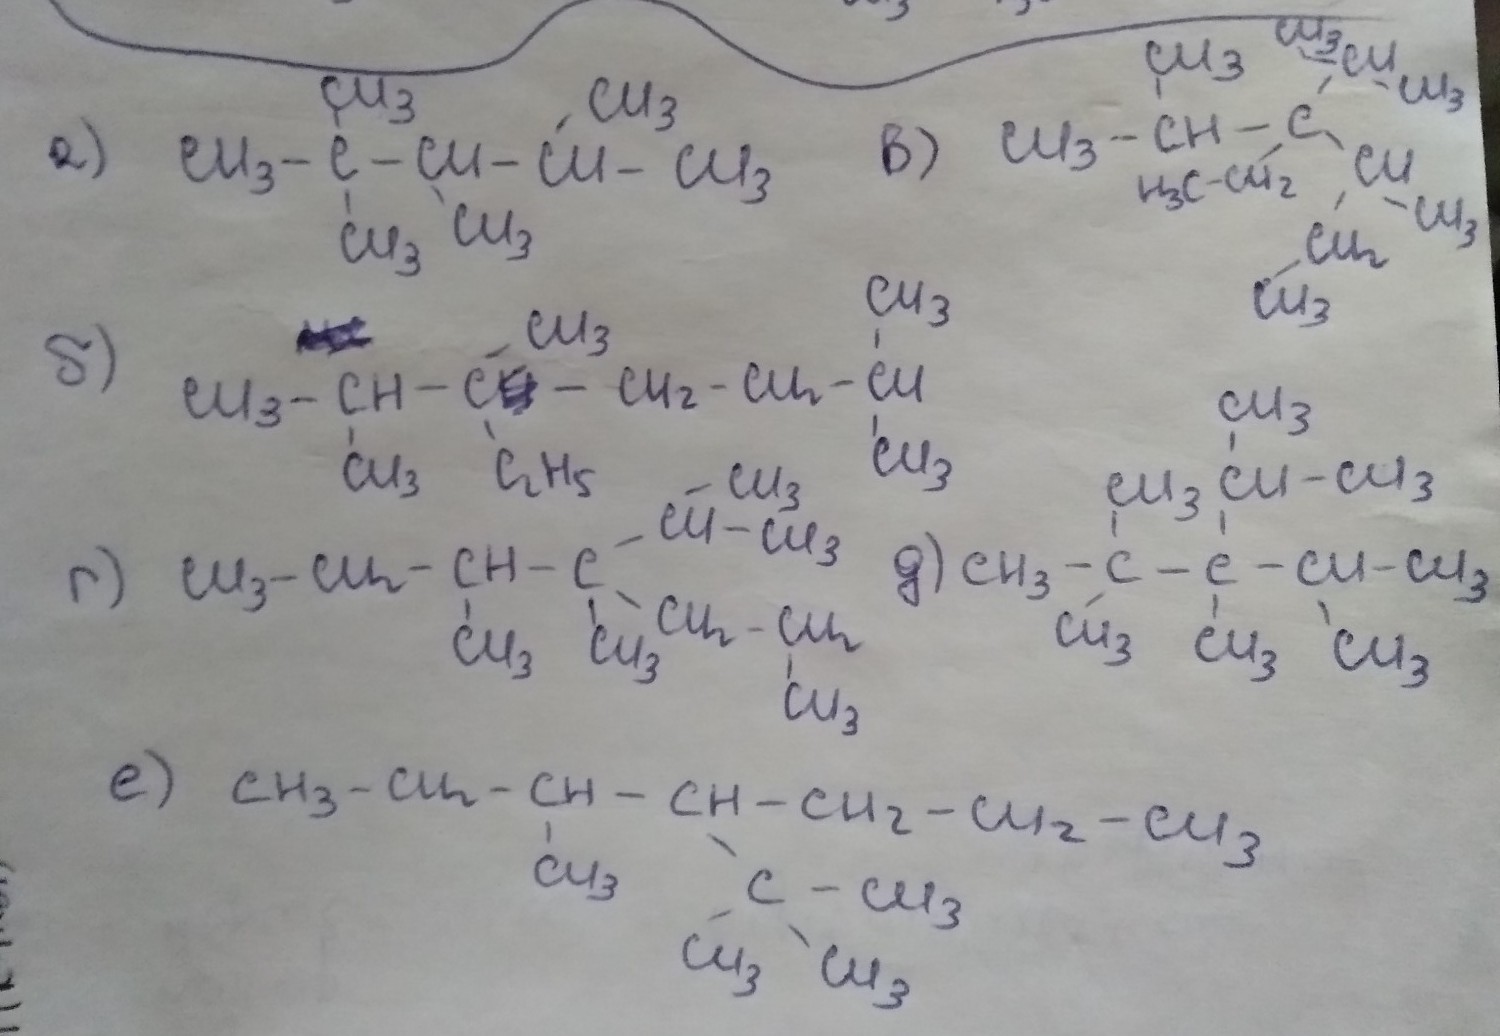 CH3 CH3
а) CH3 – C – CH – CH – CH3
CH3 CH3
CH3 CH3 CH CH3
в) CH3 – CH – C
H3C – CH2 CH
CH3
CH2
CH3
CH3 CH3
б) CH3 – CH – C – CH2 – CH2 – CH
CH3 C2H5 CH3
CH3
CH – CH3
г) CH3 – CH2 – CH – C
CH2 – CH2
CH3 CH3
CH3
CH3
CH3 CH – CH3
д) CH3 – C – C – CH – CH3
CH3 CH3 CH3
е) CH3 – CH2 – CH – CH – CH2 – CH2 – CH3
CH3 C – CH3
CH3 CH3